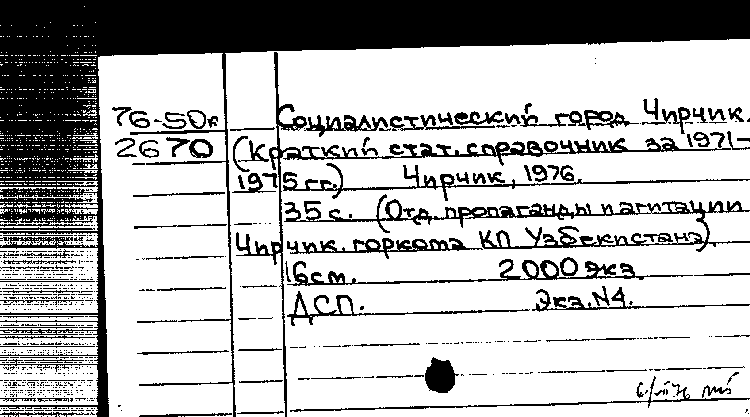 76-50к Социалистический город Чирчик.
2670 (Краткий стат. справочник за 1971-
1975 гг.) Чирчик, 1976.
35 с. (Отд. пропаганды и агитации
Чирчик. горкома КП Узбекистана)
16см. 2000 экз.
ДСП. Экз. N4.